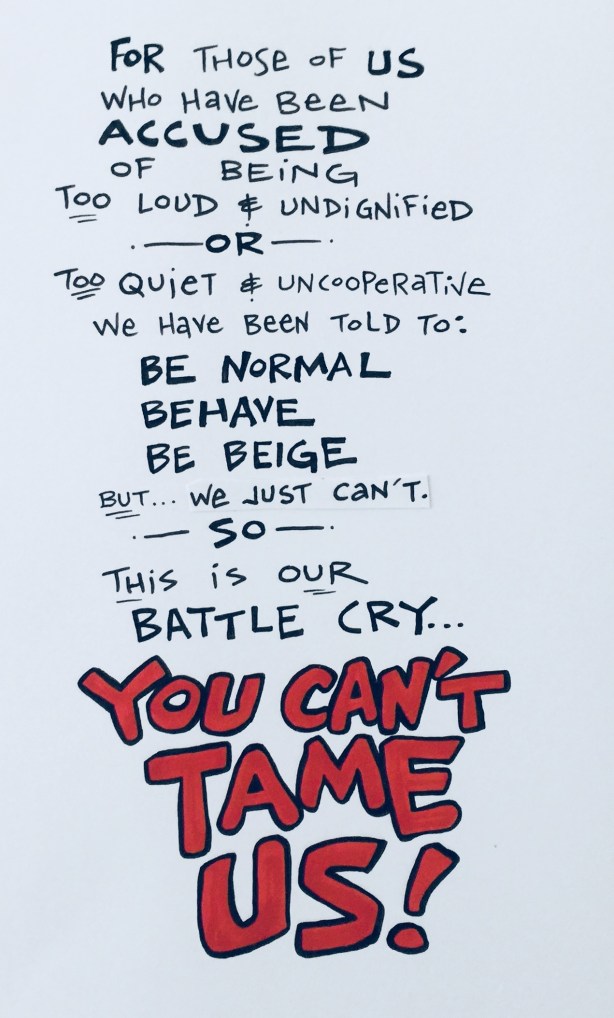 FOR THOSE OF US
WHO HAVE BEEN
ACCUSED
OF BEING
TOO LOUD & UNDIGNIFIED
OR
TOO QUIET & UNCOOPERATIVE
WE HAVE BEEN TOLD TO:
BE NORMAL
BEHAVE
BE BEIGE
BUT... WE JUST CAN'T.
SO
THIS IS OUR
BATTLE CRY...
YOU CAN'T
TAME
US!